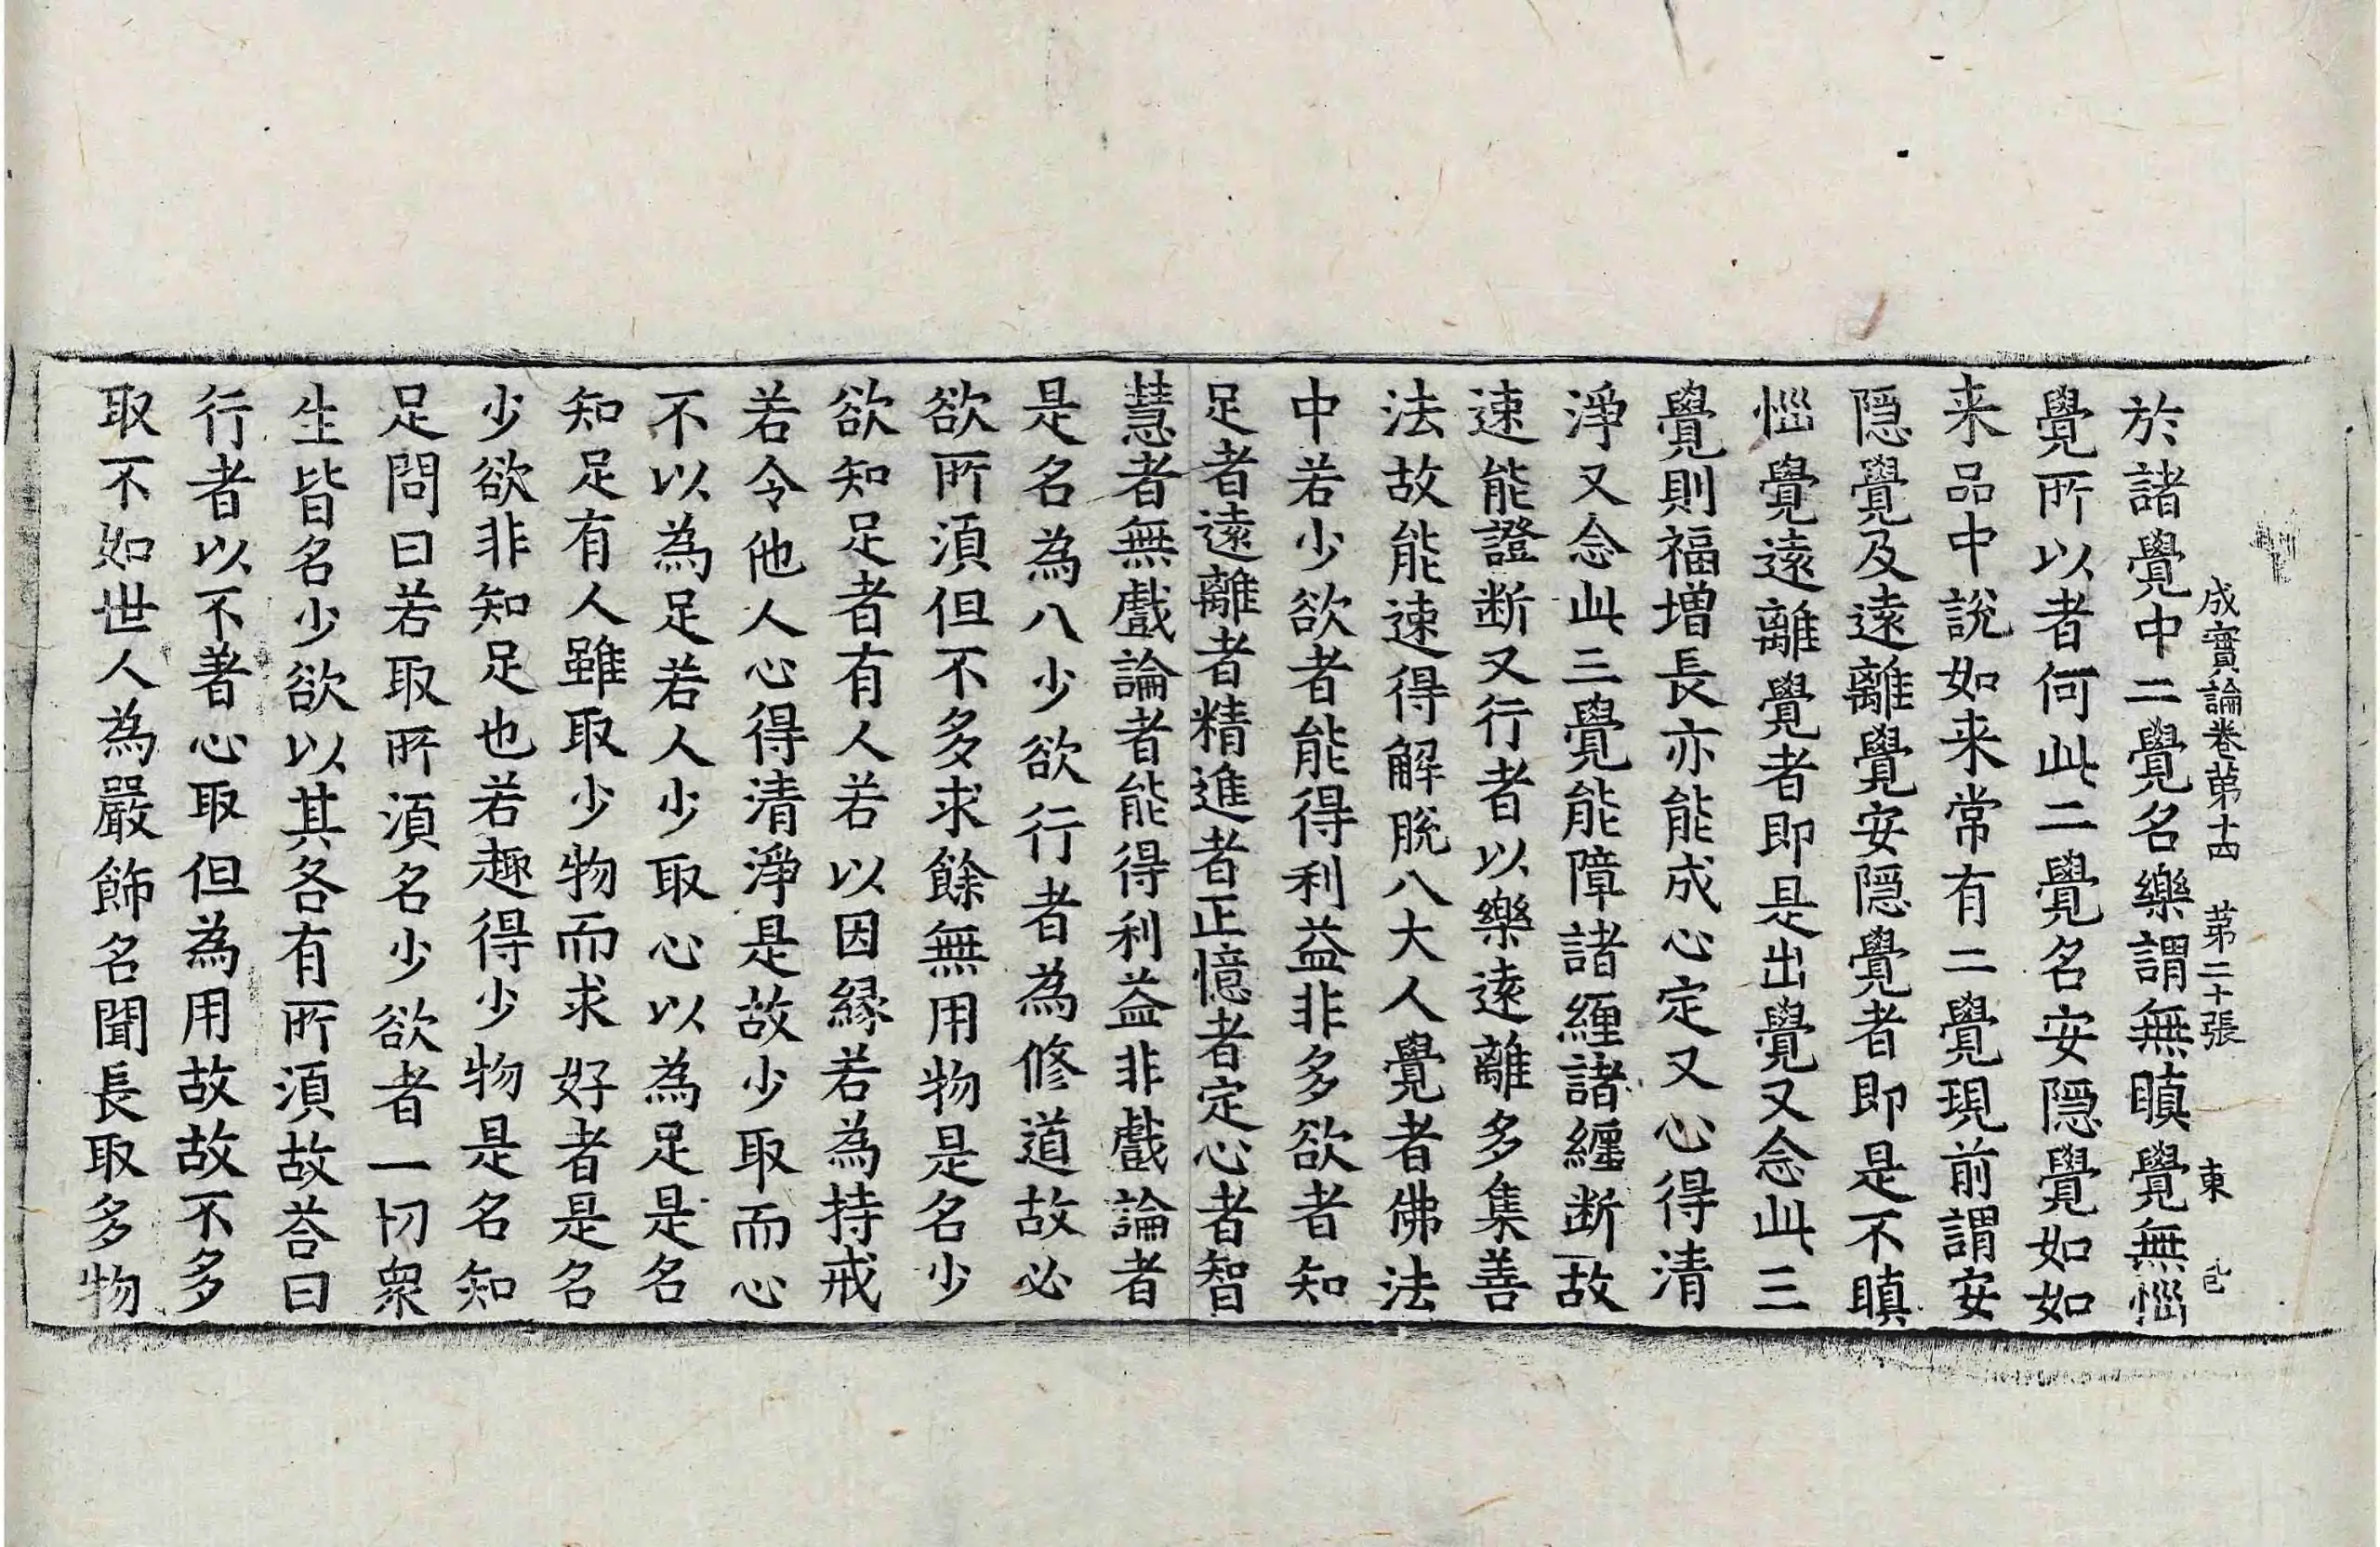 成實論卷第十四 第二十張 東
於諸覺中二覺名樂謂無瞋覺無𢙉
覺所以者何此二覺名安隱覺如如
来品中說如来常有二覺現前謂安
隱覺及遠離覺安隱覺者即是不瞋
𢙉覺遠離覺者即是出覺又念此三
覺則福增長亦能成心定又心得清
淨又念此三覺能障諸纏諸纏断故
速能證断又行者以樂遠離多集善
法故能速得解脫八大人覺者佛法
中若少欲者能得利益非多欲者知
足者遠離者精進者正憶者定心者智
慧者無戲論者能得利益非戲論者
是名為八少欲行者為修道故必
欲所湏但不多求餘無用物是名少
欲知足者有人若以因縁若為持戒
若令他人心得清淨是故少取而心
不以為足若人少取心以為足是名
知足有人雖取少物而求好者是名
少欲非知足也若趣得少物是名知
足問曰若取所湏名少欲者一切衆
生皆名少欲以其各有所湏故荅曰
行者以不著心取但為用故故不多
取不如世人為嚴飾名聞長取多物